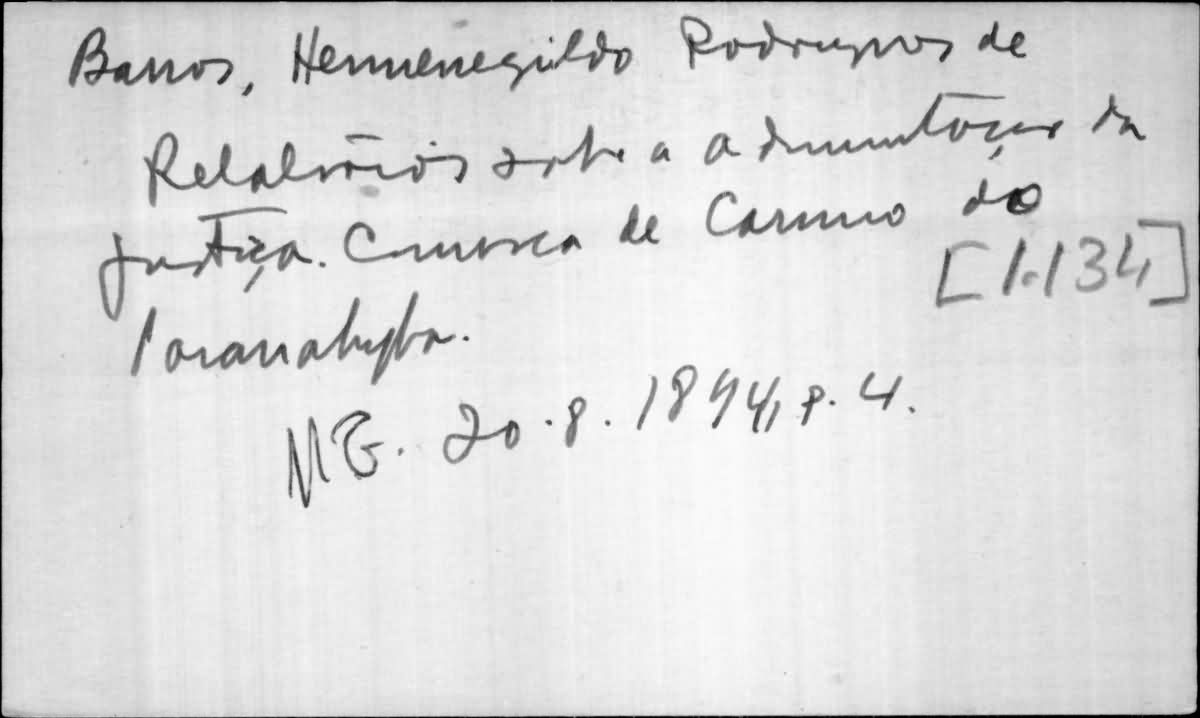 Barros, Hermenegildo Rodrigues de
Relatórios sobre a administração da
justiça. Comarca de Carmo do
[1.134]
Paranahyba.
MG. 20.8.1894, p. 4.